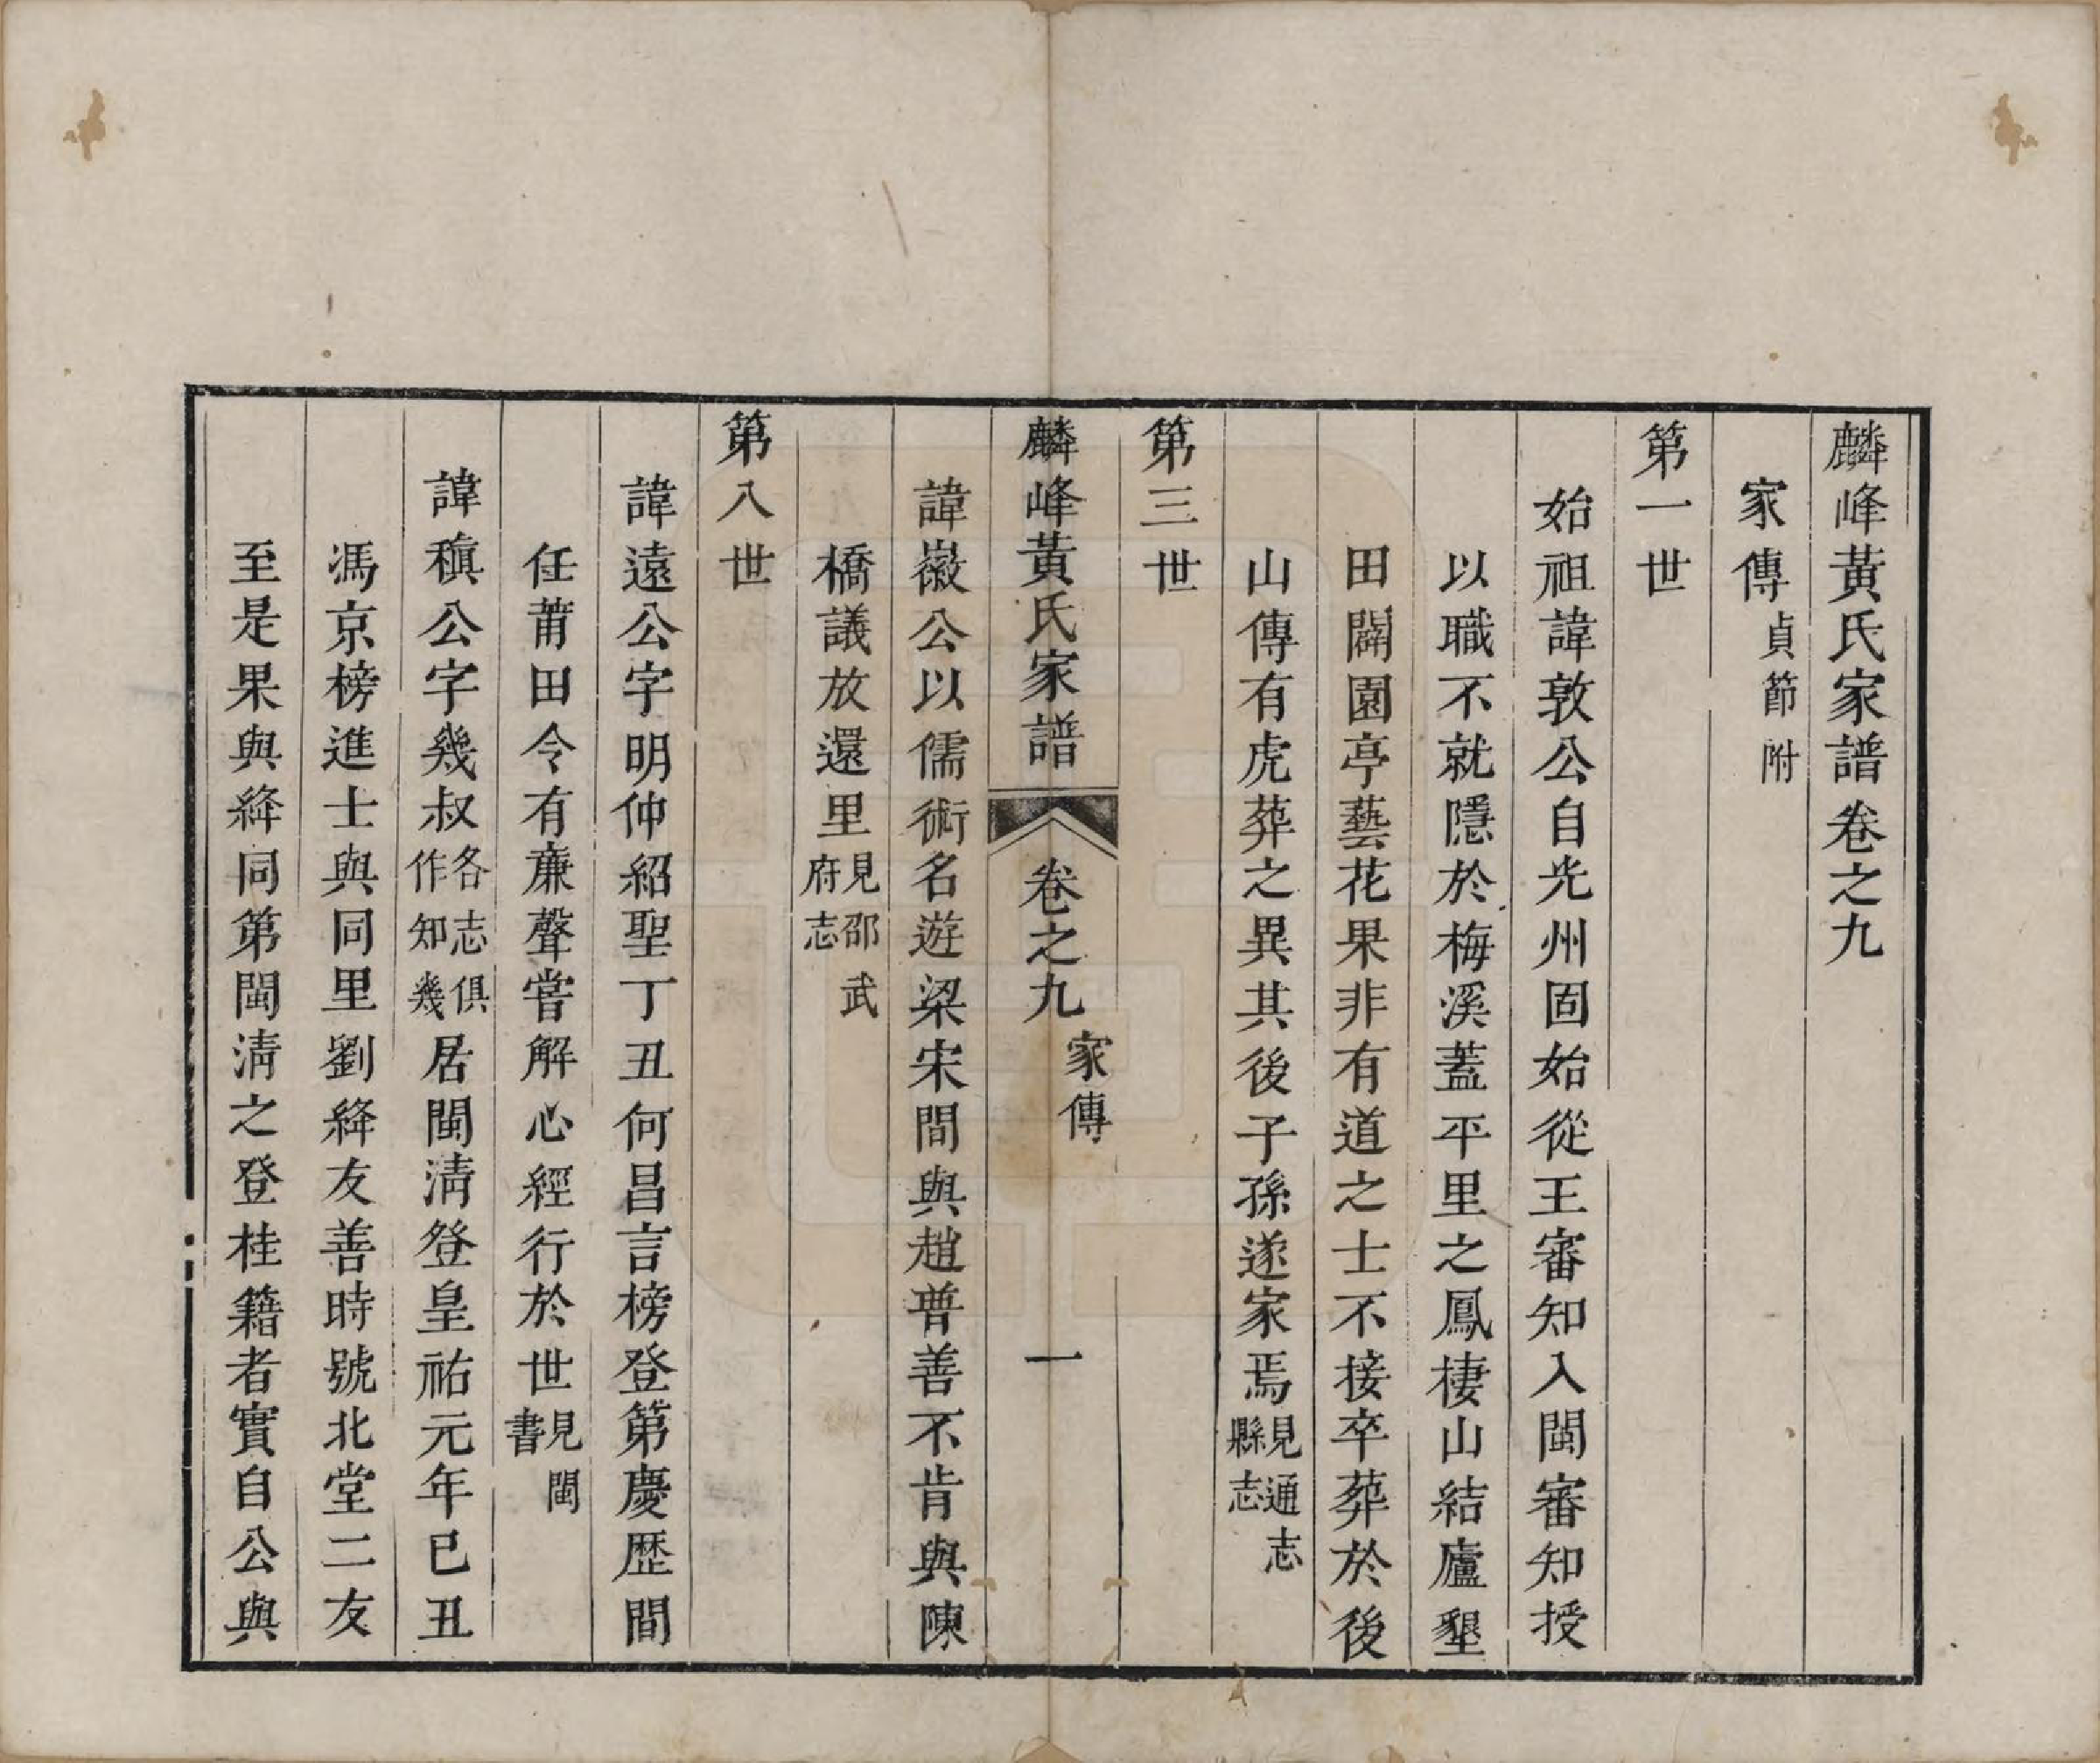 麟峰黃氏家譜卷之九
家傳貞節附
第一世
始祖諱敦公自光州固始從王審知入閩審知授
以職不就隱於梅溪蓋平里之鳳棲山結廬墾
田闢園亭藝花果非有道之士不接卒葬於後
山傳有虎葬之異其後子孫遂家焉見通志縣志
第三世
麟峰黃氏家譜 卷之九 家傳 一
諱嶶公以儒術名遊梁宋間與趙普善不肯與陳
橋議放還里見邵武府志
第八世
諱遠公字明仲紹聖丁丑何昌言榜登第慶歷間
任莆田令有廉聲嘗解心經行於世見閩書
諱稹公字幾叔各志俱作知幾居閩淸登皇祐元年已丑
馮京榜進士與同里劉絳友善時號北堂二友
至是果與絳同第閩淸之登桂籍者實自公與